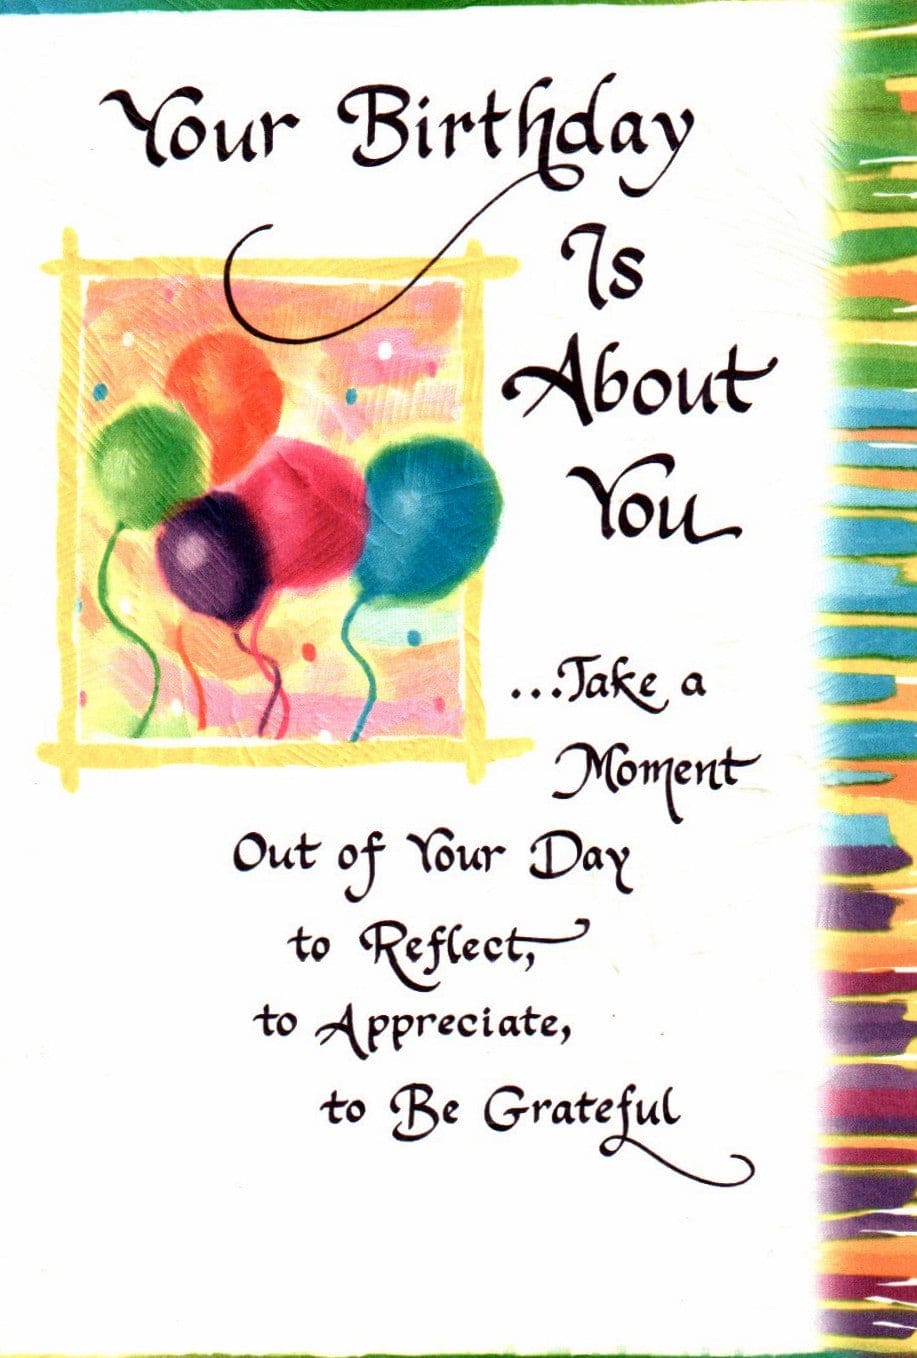 Your Birthday
Is
About
You
...Take a
Moment
Out of Your Day
to Reflect,
to Appreciate,
to Be Grateful